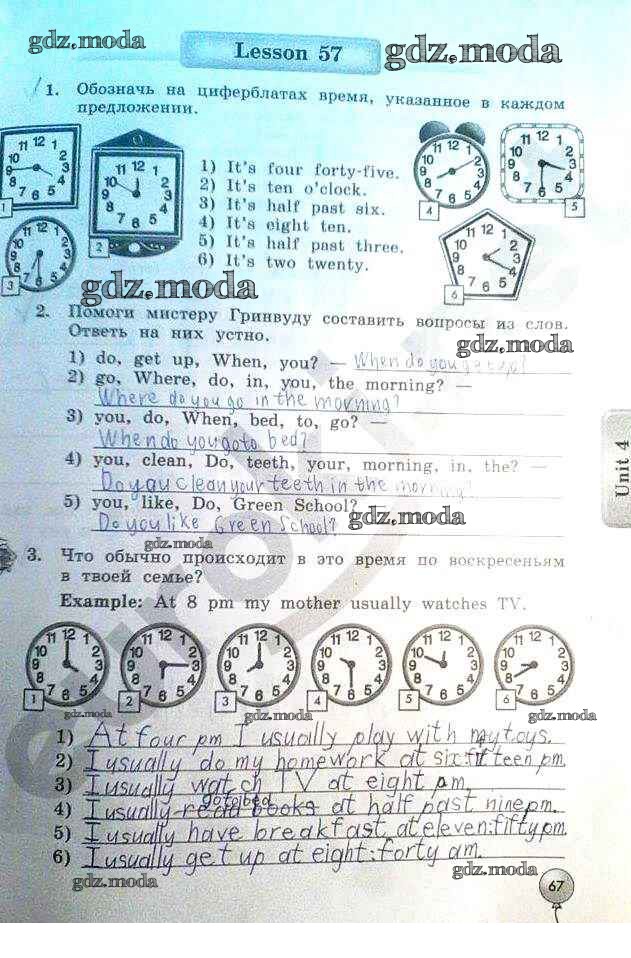 gdz.moda
Lesson 57
gdz.moda
1. Обозначь на циферблатах время, указанное в каждом
предложении.
1) It's four forty-five.
2) It's ten o'clock.
3) It's half past six.
4) It's eight ten.
5) It's half past three.
6) It's two twenty.
1
2
3
4
5
6
gdz.moda
2. Помоги мистеру Гринвуду составить вопросы из слов.
Ответь на них устно.
gdz.moda
1) do, get up, When, you? — When do you get up?
2) go, Where, do, in, you, the morning? —
Where do you go in the morning?
3) you, do, When, bed, to, go? —
When do you go to bed?
4) you, clean, Do, teeth, your, morning, in, the? —
Do you clean your teeth in the morning?
5) you, like, Do, Green School?
Do you like Green School?
gdz.moda
Unit 4
gdz.moda
3. Что обычно происходит в это время по воскресеньям
в твоей семье?
Example: At 8 pm my mother usually watches TV.
1
2
3
4
5
6
gdz.moda
gdz.moda
gdz.moda
1) At four pm I usually play with my toys.
2) I usually do my homework at six:fifteen pm.
3) I usually watch TV at eight pm.
go to bed
4) I usually read books at half past nine pm.
5) I usually have breakfast at eleven:fifty pm.
6) I usually get up at eight:forty am.
gdz.moda
gdz.moda
67
gdz.moda